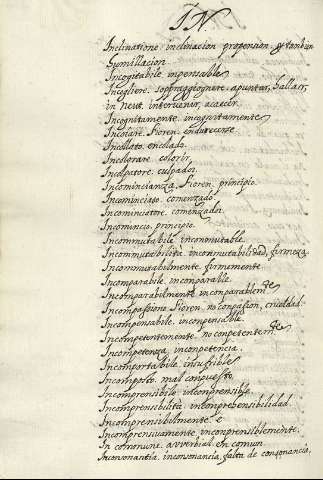 IN
Inclinatione. inclinacion propension y tambien
humillacion
Incogitabile. impensable
Incogliere. sopraggiognere. apuntar, hallar,
in neut. intervenir, acaecer
Incognitamente. incognitamente
Incoiare. Fioren. endurecerse
Incollato. encolado.
Incolorare. colorir.
Incolpatore. culpador.
Incominciança. Fioren. principio.
Incominciato. comenzado
Incominciatore. comenzador
Incomincio. principio.
Incommutabile. inconmutable.
Incommutabilità. inconmutabilidad, firmeza.
Incommutabilmente. firmemente
Incomparabile. inconparable.
Incomparabilmente. inconparablemte
Incompassione. Fioren. no conpasion, crueldad.
Incompensabile. inconpensable.
Incompetentemente. no conpetentemte
Incompetenza. inconpetencia.
Incomportabile. insufrible
Incomposto. mal conpuesto.
Incomprensibile. inconprensible.
Incomprensibilità. incomprehensibilidad.
Incomprensibilmente. e
Incomprensivamente. inconprensiblemente.
In comune. averbial. en comun.
Inconsonantia. inconsonancia, falta de consonancia.